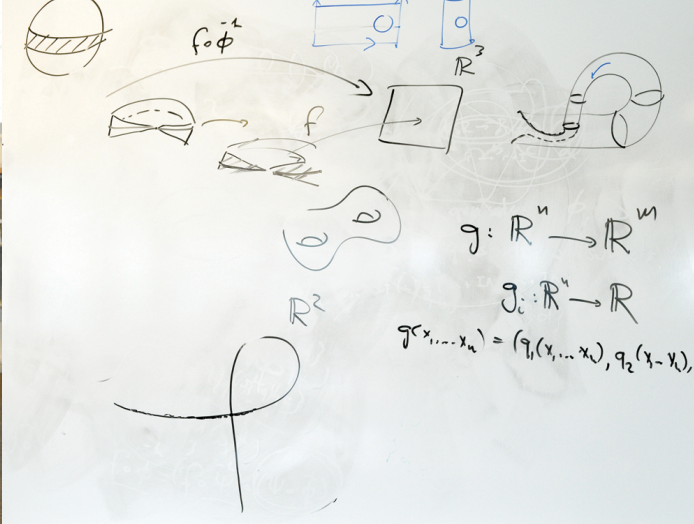 f∘ϕ⁻¹
ℝ³
f
g: ℝⁿ → ℝᵐ
gᵢ: ℝⁿ → ℝ
ℝ²
g(x₁,...xₙ) = (g₁(x₁,...xₙ), g₂(x₁–xₙ),